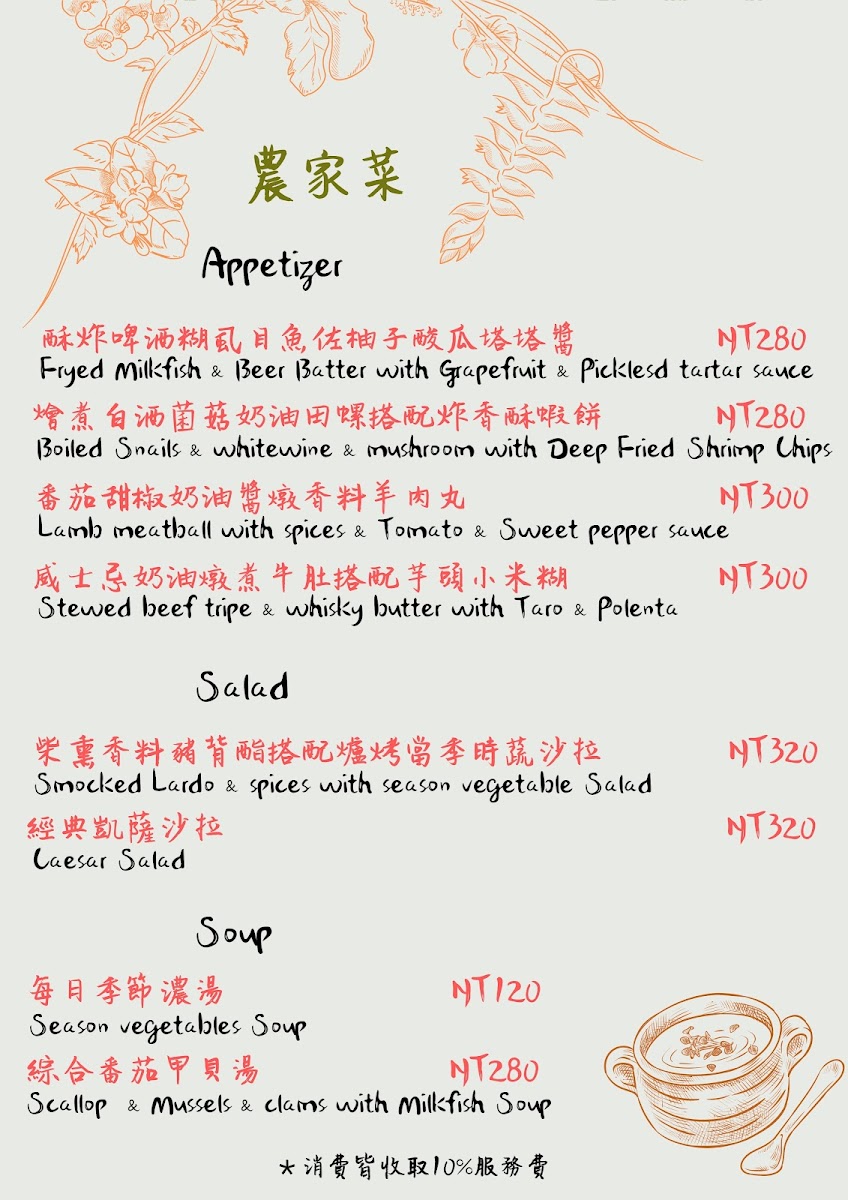 農家菜
Appetizer
酥炸啤酒糊虱目魚佐柚子酸瓜塔塔醬 NT280
Fryed Milkfish & Beer Batter with Grapefruit & Picklesd tartar sauce
燴煮白酒菌菇奶油田螺搭配炸香酥蝦餅 NT280
Boiled Snails & whitewine & mushroom with Deep Fried Shrimp Chips
番茄甜椒奶油醬燉香料羊肉丸 NT300
Lamb meatball with spices & Tomato & Sweet pepper sauce
威士忌奶油燉煮牛肚搭配芋頭小米糊 NT300
Stewed beef tripe & whisky butter with Taro & Polenta
Salad
柴熏香料豬背酯搭配爐烤當季時蔬沙拉 NT320
Smocked Lardo & spices with season vegetable Salad
經典凱薩沙拉 NT320
Caesar Salad
Soup
每日季節濃湯 NT120
Season vegetables Soup
綜合番茄甲貝湯 NT280
Scallop & Mussels & clams with Milkfish Soup
*消費皆收取10%服務費